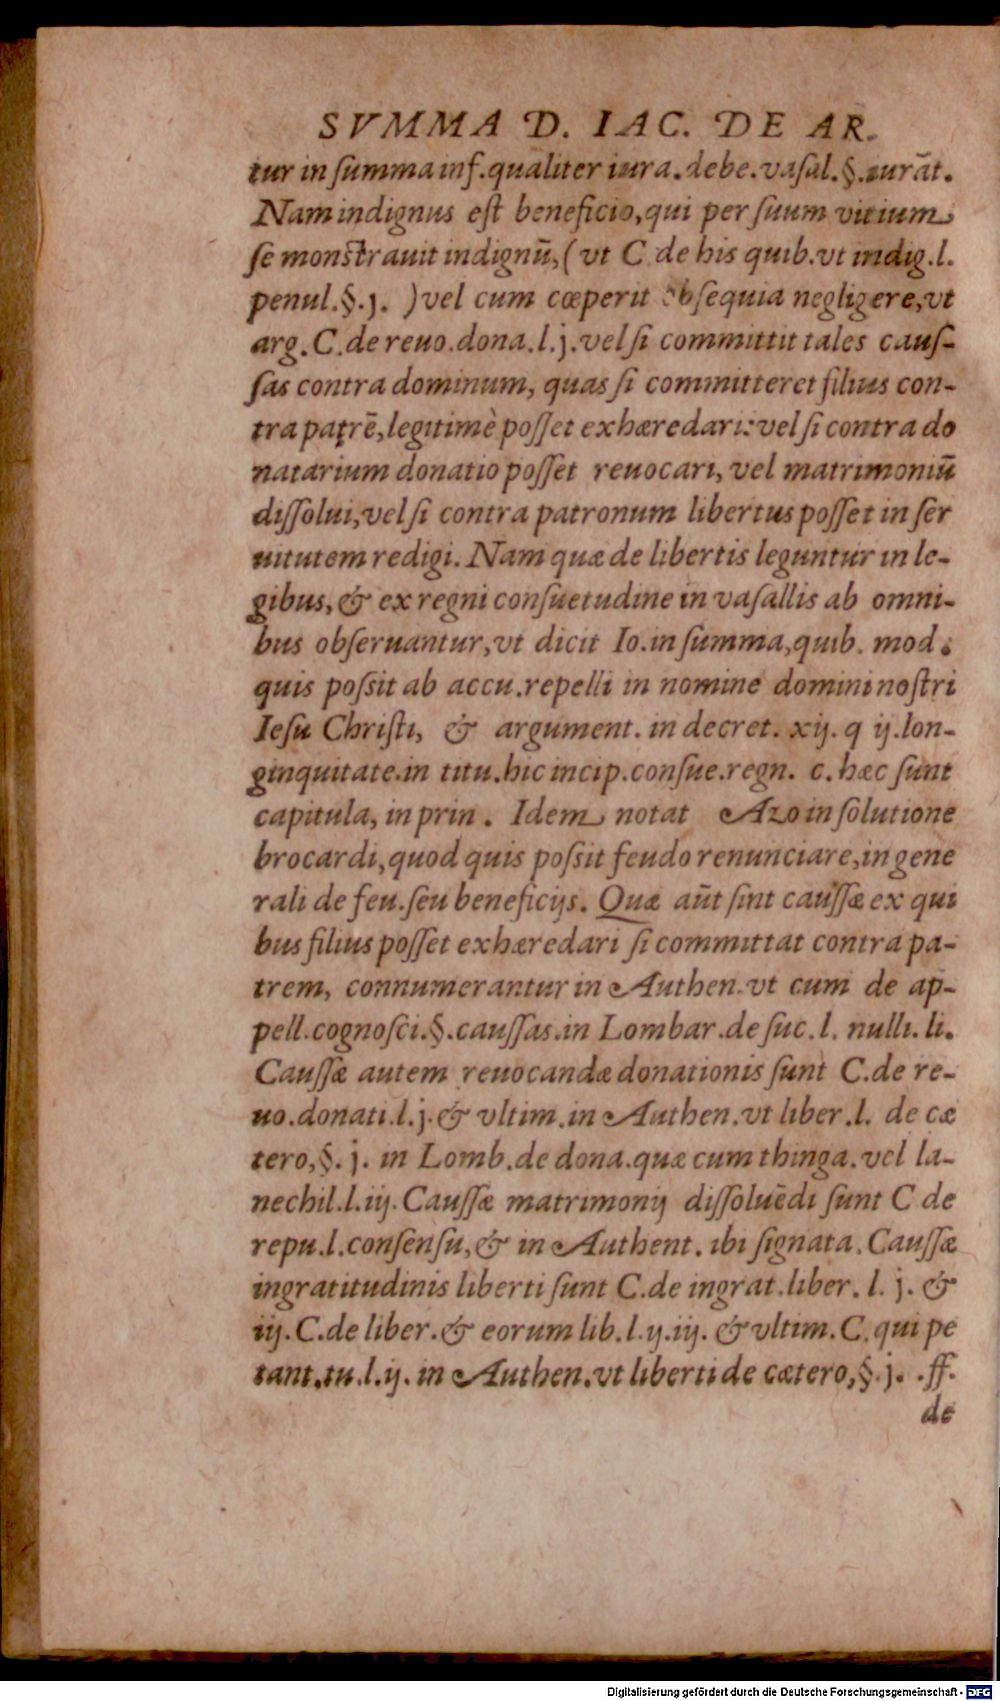 SVMMA D. IAC. DE AR.
tur in ſumma inf. qualiter iura. debe. vaſal. §. iurāt.
Nam indignus eſt beneficio, qui per ſuum vitium
ſe monſtrauit indignū, (vt C. de his quib. vt indig. l.
penul. §. j. ) vel cum cœperit obſequia negligere, vt
arg. C. de reuo. dona. l. j. vel ſi committit tales cauſ-
ſas contra dominum, quas ſi committeret filius con-
tra patrē, legitimè poſſet exhæredari: vel ſi contra do
natarium donatio poſſet reuocari, vel matrimoniū
diſſolui, vel ſi contra patronum libertus poſſet in ſer
uitutem redigi. Nam quæ de libertis leguntur in le-
gibus, & ex regni conſuetudine in vaſallis ab omni-
bus obſeruantur, vt dicit Io. in ſumma, quib. mod.
quis poſsit ab accu. repelli in nomine domini noſtri
Ieſu Chriſti, & argument. in decret. xij. q ij. lon-
ginquitate. in titu. hic incip. conſue. regn. c. hæc ſunt
capitula, in prin. Idem notat Azo in ſolutione
brocardi, quod quis poſsit feudo renunciare, in gene
rali de feu. ſeu beneficijs. Quæ aūt ſint cauſſæ ex qui
bus filius poſſet exhæredari ſi committat contra pa-
trem, connumerantur in Authen. vt cum de ap-
pell. cognoſci. §. cauſſas. in Lombar. de ſuc. l. nulli. li.
Cauſſæ autem reuocandæ donationis ſunt C. de re-
uo. donati. l. j. & vltim. in Authen. vt liber. l. de cæ
tero, §. j. in Lomb. de dona. quæ cum thinga. vel la-
nechil. l. iij. Cauſſæ matrimonij diſſoluēdi ſunt C de
repu. l. conſenſu, & in Authent. ibi ſignata. Cauſſæ
ingratitudinis liberti ſunt C. de ingrat. liber. l. j. &
iij. C. de liber. & eorum lib. l. ij. iij. & vltim. C. qui pe
tant. tu. l. ij. in Authen. vt liberti de cætero, §. j. .ff.
de
Digitalisierung gefördert durch die Deutsche Forschungsgemeinschaft - DFG